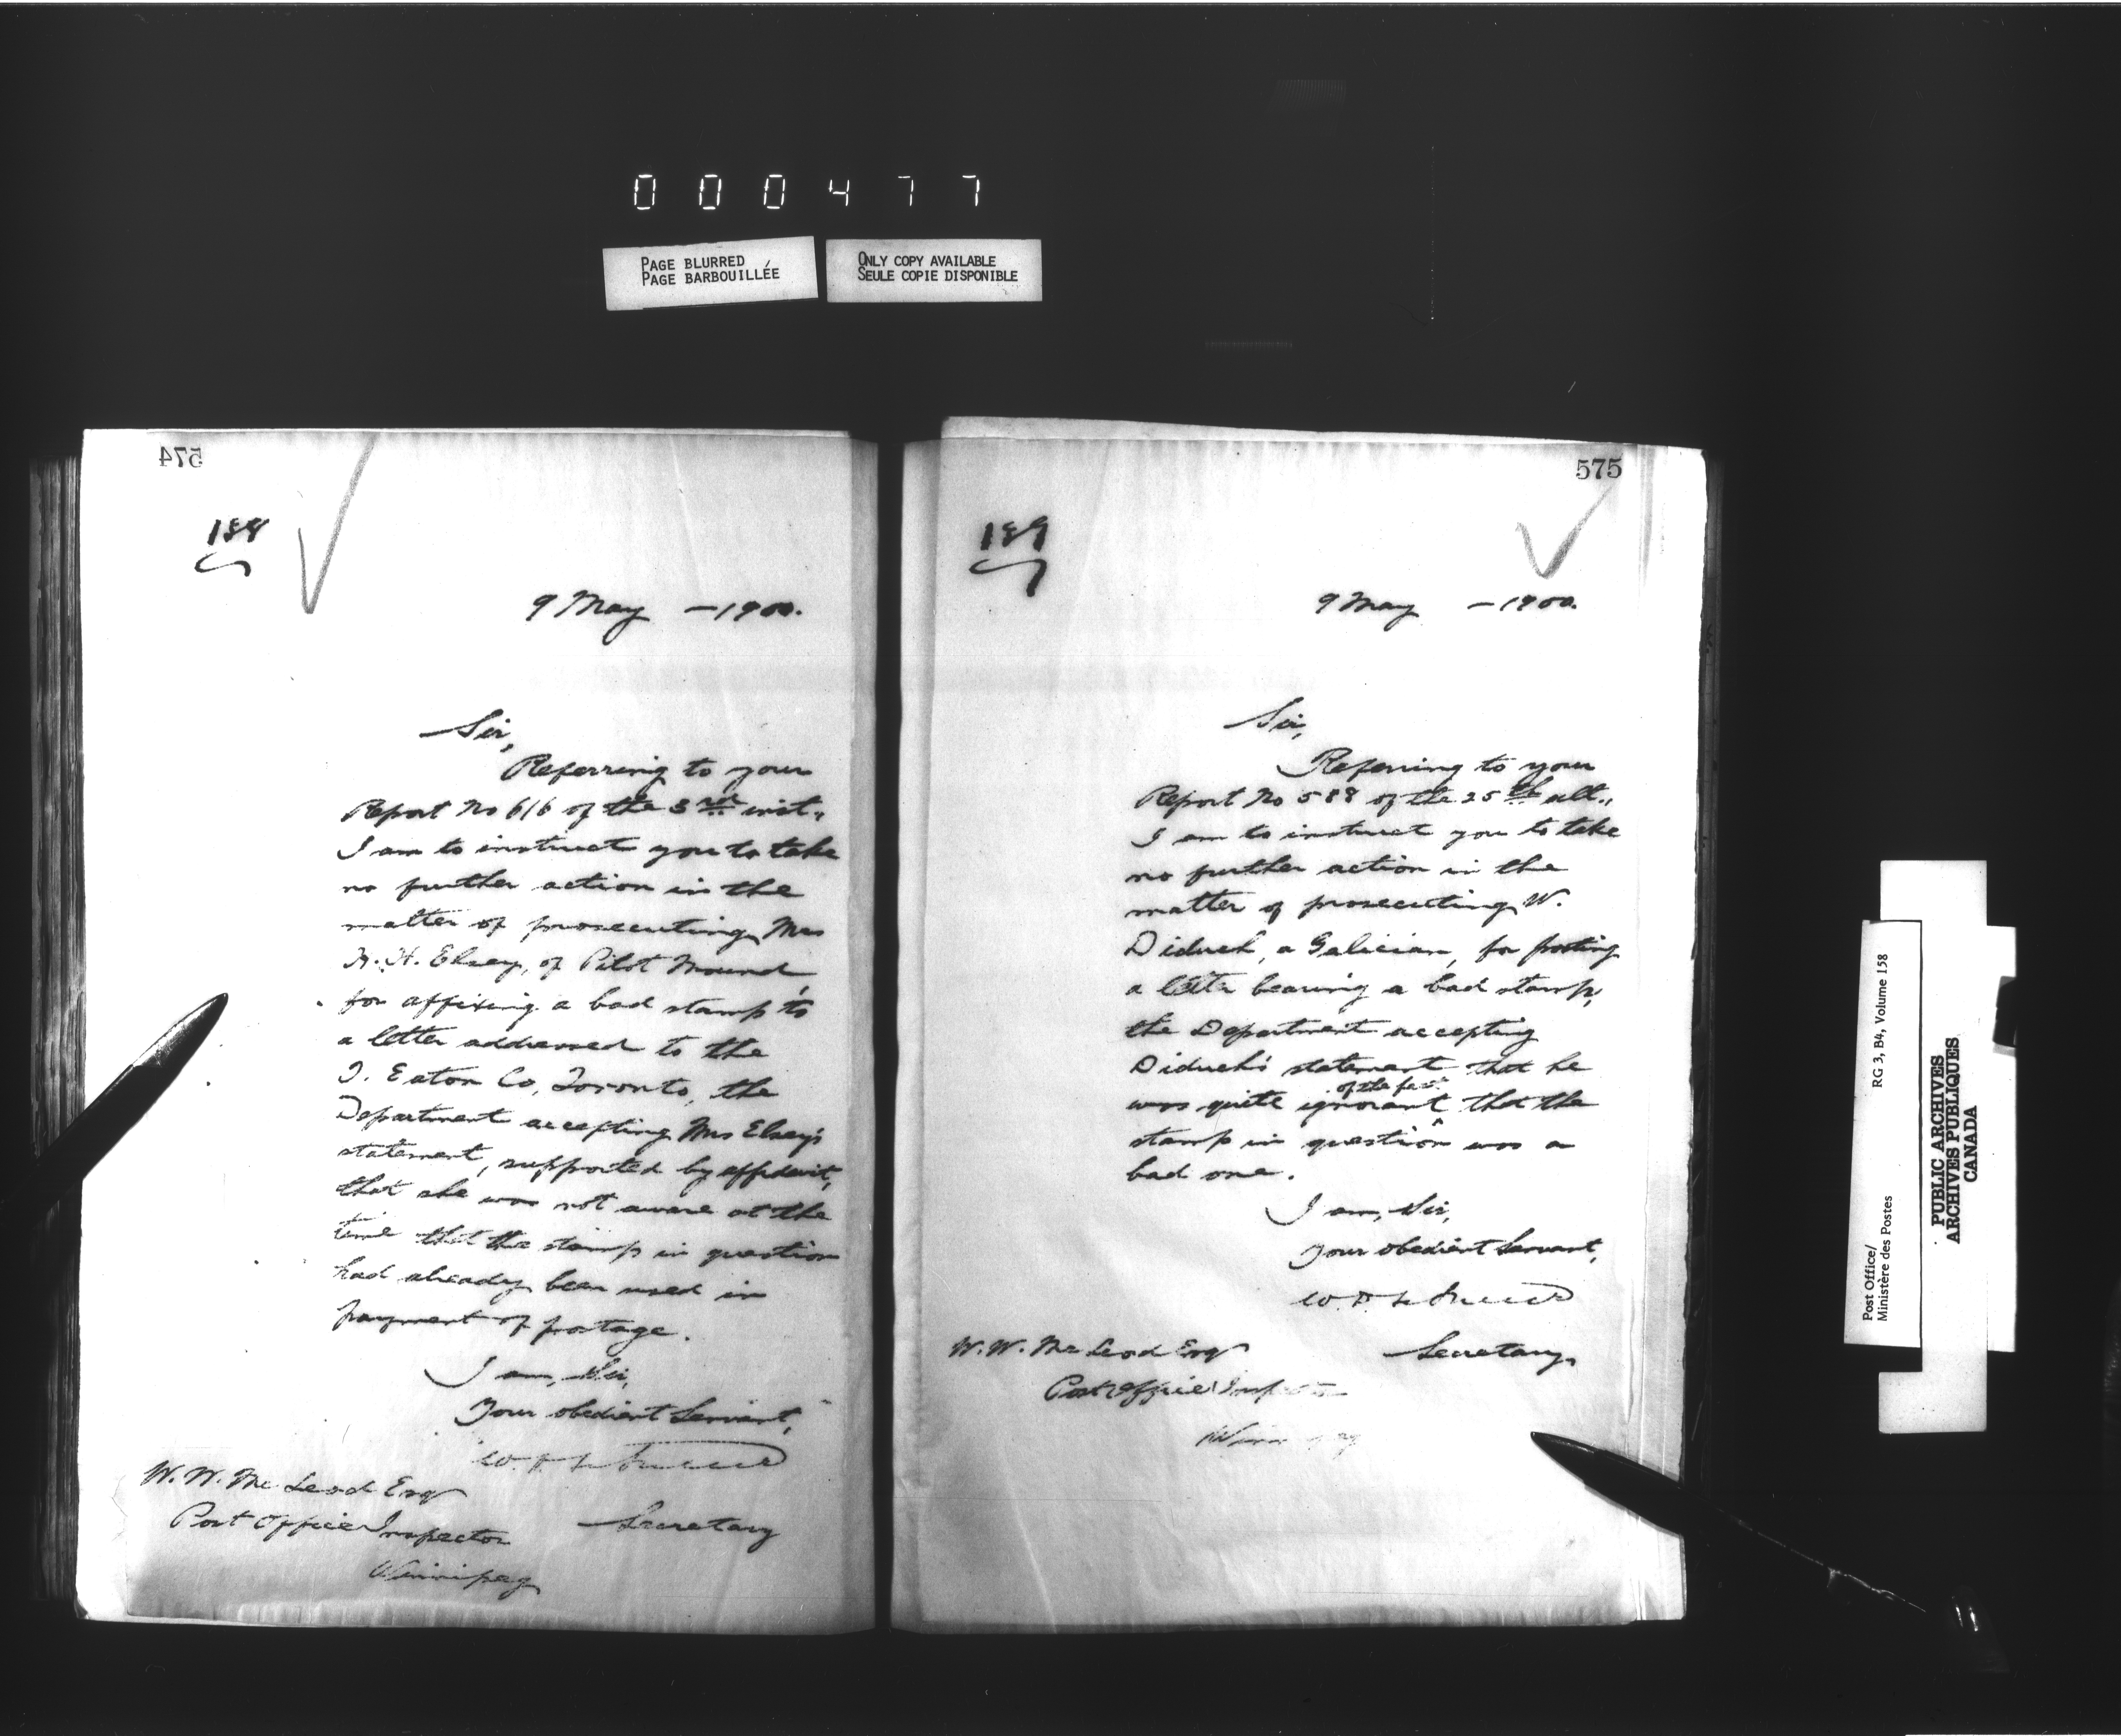 000477
PAGE BLURRED
PAGE BARBOUILLÉE
ONLY COPY AVAILABLE
SEULE COPIE DISPONIBLE
574
188
9 May – 1900.
Sir,
Referring to your
Report No 616 of the 3rd inst.,
I am to instruct you to take
no further action in the
matter of prosecuting Mrs
H. Elsey, of Pilot Mound,
for affixing a bad stamp to
a letter addressed to the
T. Eaton Co, Toronto, the
Department accepting Mrs Elsey's
statement, supported by affidavit,
that she was not aware at the
time that the stamp in question
had already been used in
payment of postage.
I am, Sir,
Your obedient Servant,
W.
Secretary
W. W. McLeod Esq
Post Office Inspector
Winnipeg
575
189
9 May – 1900.
Sir,
Referring to your
Report No 588 of the 25th ult.,
I am to instruct you to take
no further action in the
matter of prosecuting W.
Diduch, a Galician, for posting
a letter bearing a bad stamp,
the Department accepting
Diduch's statement that he
was quite ignorant of the fact that the
stamp in question was a
bad one.
I am, Sir,
Your obedient Servant,
W.
Secretary.
W. W. McLeod Esq
Post Office Inspector
Winnipeg
Post Office/
Ministère des Postes
RG 3, B4, Volume 158
PUBLIC ARCHIVES
ARCHIVES PUBLIQUES
CANADA